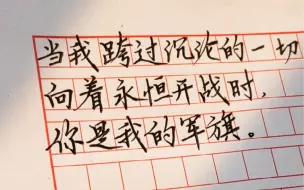 当我跨过沉沦的一切
向着永恒开战时，
你是我的军旗。